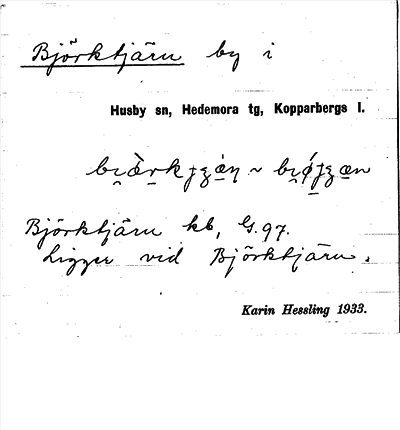 Björktjärn by i
Husby sn, Hedemora tg, Kopparbergs l.
Björktjärn kb, G. 97.
Ligger vid Björktjärn.
Karin Hessling 1933.